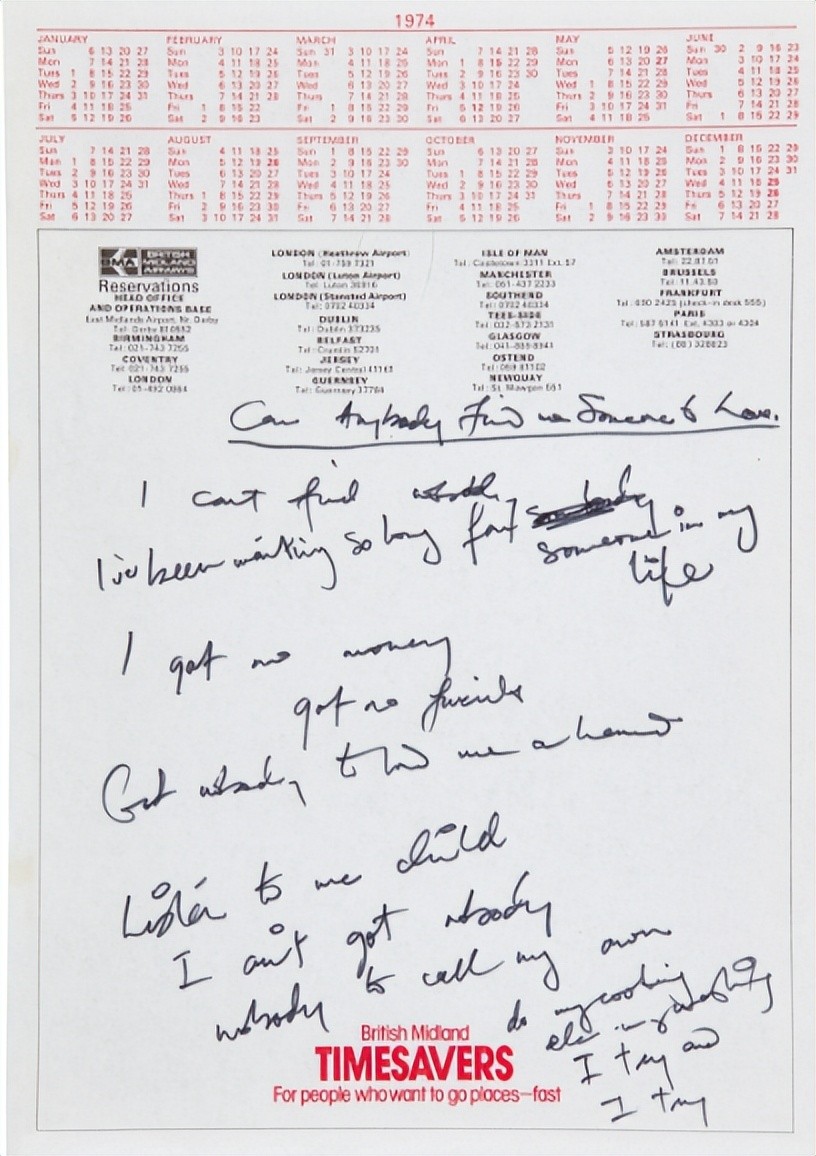 1974
JANUARY FEBRUARY MARCH APRIL MAY JUNE
Sun 6 13 20 27 Sun 3 10 17 24 Sun 31 3 10 17 24 Sun 7 14 21 28 Sun 5 12 19 26 Sun 30 2 9 16 23
Mon 7 14 21 28 Mon 4 11 18 25 Mon 4 11 18 25 Mon 1 8 15 22 29 Mon 6 13 20 27 Mon 3 10 17 24
Tues 1 8 15 22 29 Tues 5 12 19 26 Tues 5 12 19 26 Tues 2 9 16 23 30 Tues 7 14 21 28 Tues 4 11 18 25
Wed 2 9 16 23 30 Wed 6 13 20 27 Wed 6 13 20 27 Wed 3 10 17 24 Wed 1 8 15 22 29 Wed 5 12 19 26
Thurs 3 10 17 24 31 Thurs 7 14 21 28 Thurs 7 14 21 28 Thurs 4 11 18 25 Thurs 2 9 16 23 30 Thurs 6 13 20 27
Fri 4 11 18 25 Fri 1 8 15 22 Fri 1 8 15 22 29 Fri 5 12 19 26 Fri 3 10 17 24 31 Fri 7 14 21 28
Sat 5 12 19 26 Sat 2 9 16 23 Sat 2 9 16 23 30 Sat 6 13 20 27 Sat 4 11 18 25 Sat 1 8 15 22 29
JULY AUGUST SEPTEMBER OCTOBER NOVEMBER DECEMBER
Sun 7 14 21 28 Sun 4 11 18 25 Sun 1 8 15 22 29 Sun 6 13 20 27 Sun 3 10 17 24 Sun 1 8 15 22 29
Mon 1 8 15 22 29 Mon 5 12 19 26 Mon 2 9 16 23 30 Mon 7 14 21 28 Mon 4 11 18 25 Mon 2 9 16 23 30
Tues 2 9 16 23 30 Tues 6 13 20 27 Tues 3 10 17 24 Tues 1 8 15 22 29 Tues 5 12 19 26 Tues 3 10 17 24 31
Wed 3 10 17 24 31 Wed 7 14 21 28 Wed 4 11 18 25 Wed 2 9 16 23 30 Wed 6 13 20 27 Wed 4 11 18 25
Thurs 4 11 18 25 Thurs 1 8 15 22 29 Thurs 5 12 19 26 Thurs 3 10 17 24 31 Thurs 7 14 21 28 Thurs 5 12 19 26
Fri 5 12 19 26 Fri 2 9 16 23 30 Fri 6 13 20 27 Fri 4 11 18 25 Fri 1 8 15 22 29 Fri 6 13 20 27
Sat 6 13 20 27 Sat 3 10 17 24 31 Sat 7 14 21 28 Sat 5 12 19 26 Sat 2 9 16 23 30 Sat 7 14 21 28
BMA BRITISH MIDLAND AIRWAYS
Reservations
HEAD OFFICE
AND OPERATIONS BASE
East Midlands Airport, Nr. Derby
BIRMINGHAM
Tel: 021-743 7255
COVENTRY
Tel: 021-743 7255
LONDON
LONDON (Heathrow Airport)
LONDON (Luton Airport)
LONDON (Stansted Airport)
DUBLIN
BELFAST
JERSEY
GUERNSEY
ISLE OF MAN
MANCHESTER
SOUTHEND
TEES-SIDE
GLASGOW
OSTEND
NEWQUAY
AMSTERDAM
BRUSSELS
FRANKFURT
PARIS
STRASBOURG
Can Anybody Find me Someone to Love.
I cant find nobody
I've been waiting so long for somebody
someone in my
life
I got no money
got no friends
Got nobody to hold me
Listen to me child
I ain't got nobody
nobody to call my own
do my cooking
I try and
I try
British Midland
TIMESAVERS
For people who want to go places–fast